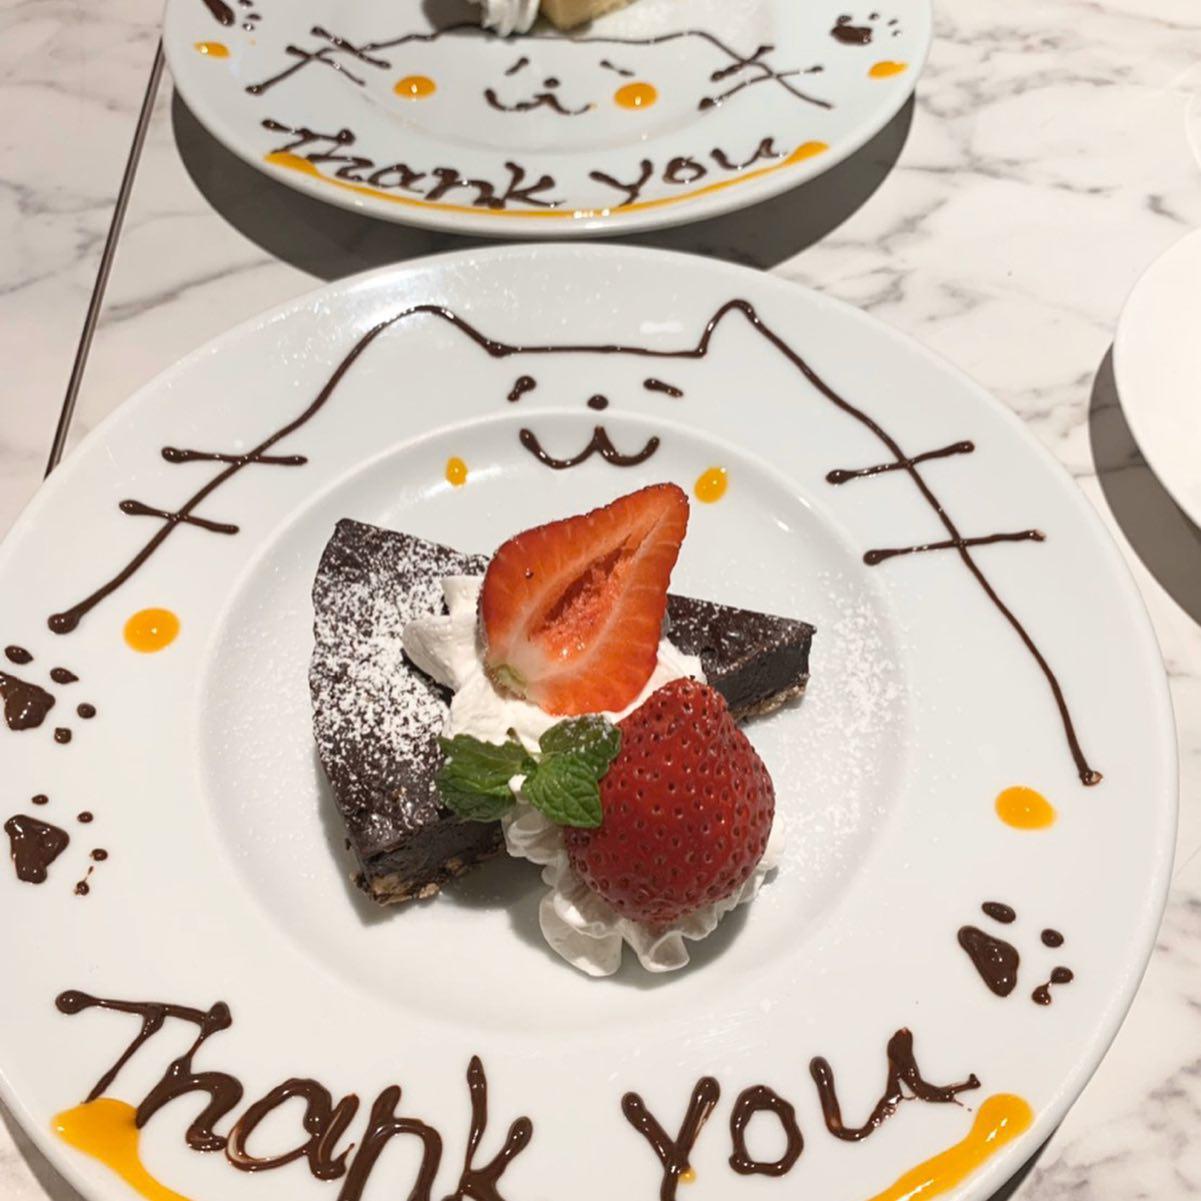 Thank you
Thank you